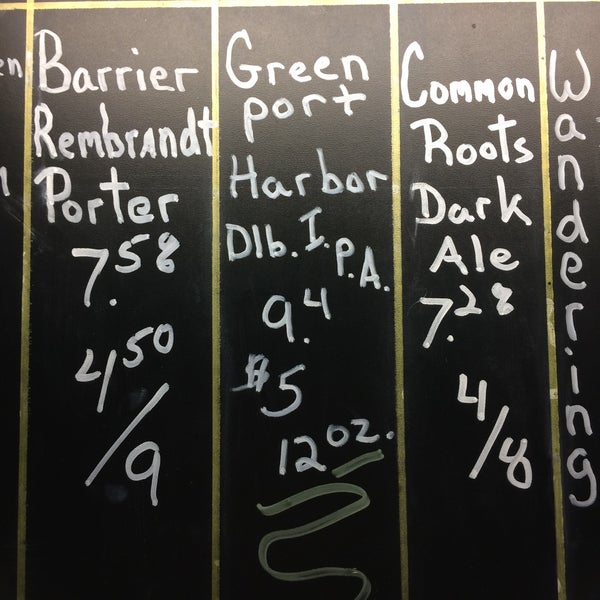 Barrier
Rembrandt
Porter
7.58
4.50
/9
Green
port
Harbor
Dlb. I.P.A.
9.4
$5
12 oz.
Common
Roots
Dark
Ale
7.28
4/8
Wandering